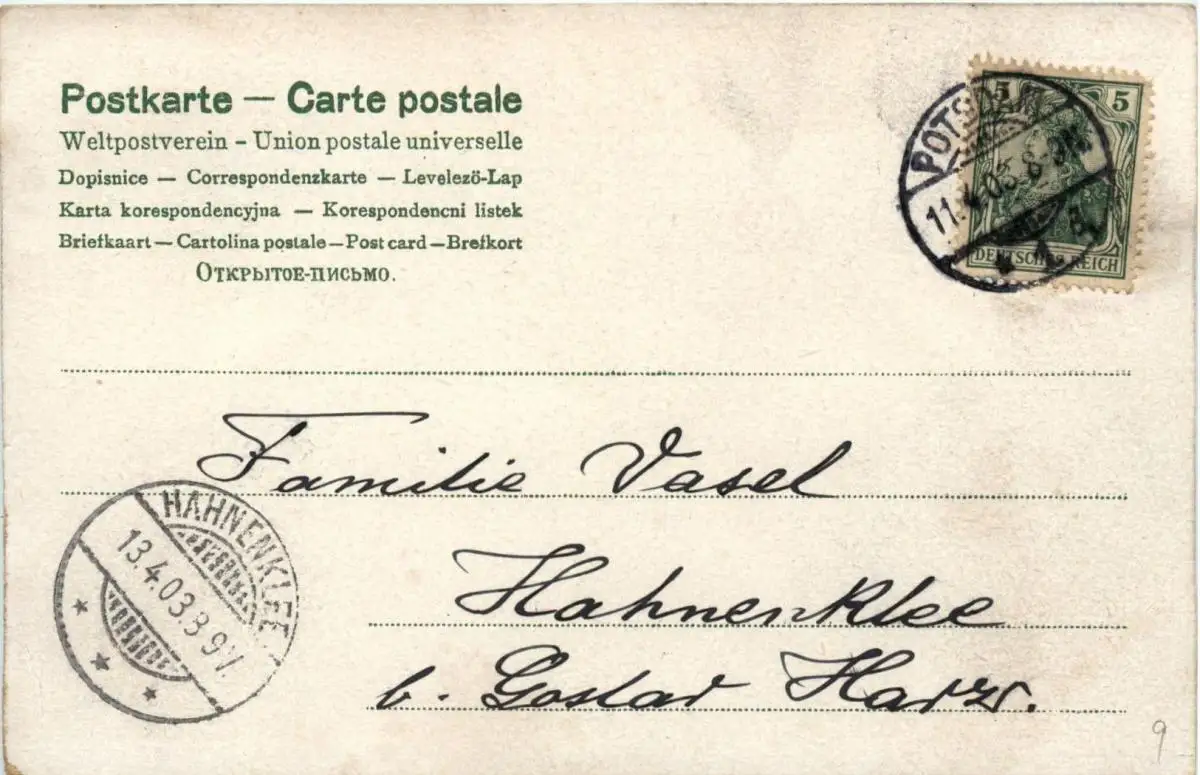 Postkarte — Carte postale
Weltpostverein - Union postale universelle
Dopisnice — Correspondenzkarte — Levelező-Lap
Karta korespondencyjna — Korespondencni listek
Briefkaart — Cartolina postale — Post card — Brefkort
Открытое-письмо.
5 5
DEUTSCHES REICH
POTSDAM
11.4.03.8-9N.
Familie Vasel
HAHNENKLEE
13.4.03.8-9V.
Hahnenklee
b. Goslar Harz.
9